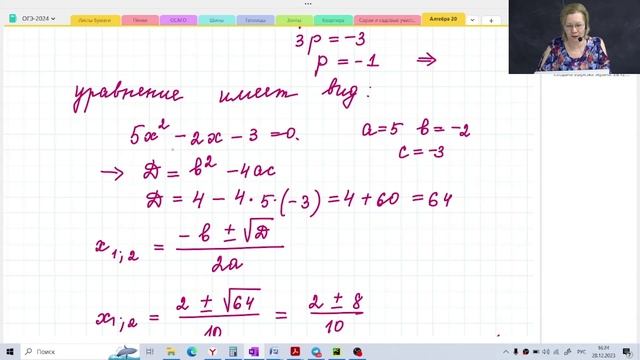 ОГЭ-2024
Листы бумаги
Печки
ОСАГО
Шины
Теплицы
Зонты
Квартира
Алгебра 20
3p = -3
p = -1 ⇒
уравнение имеет вид:
5x² - 2x - 3 = 0. a = 5 b = -2
c = -3
→ D = b² - 4ac
D = 4 - 4 · 5 · (-3) = 4 + 60 = 64
x₁;₂ = (-b ± √D) / 2a
x₁;₂ = (2 ± √64) / 10 = (2 ± 8) / 10
Поиск
РУС
16:24
28.12.2023